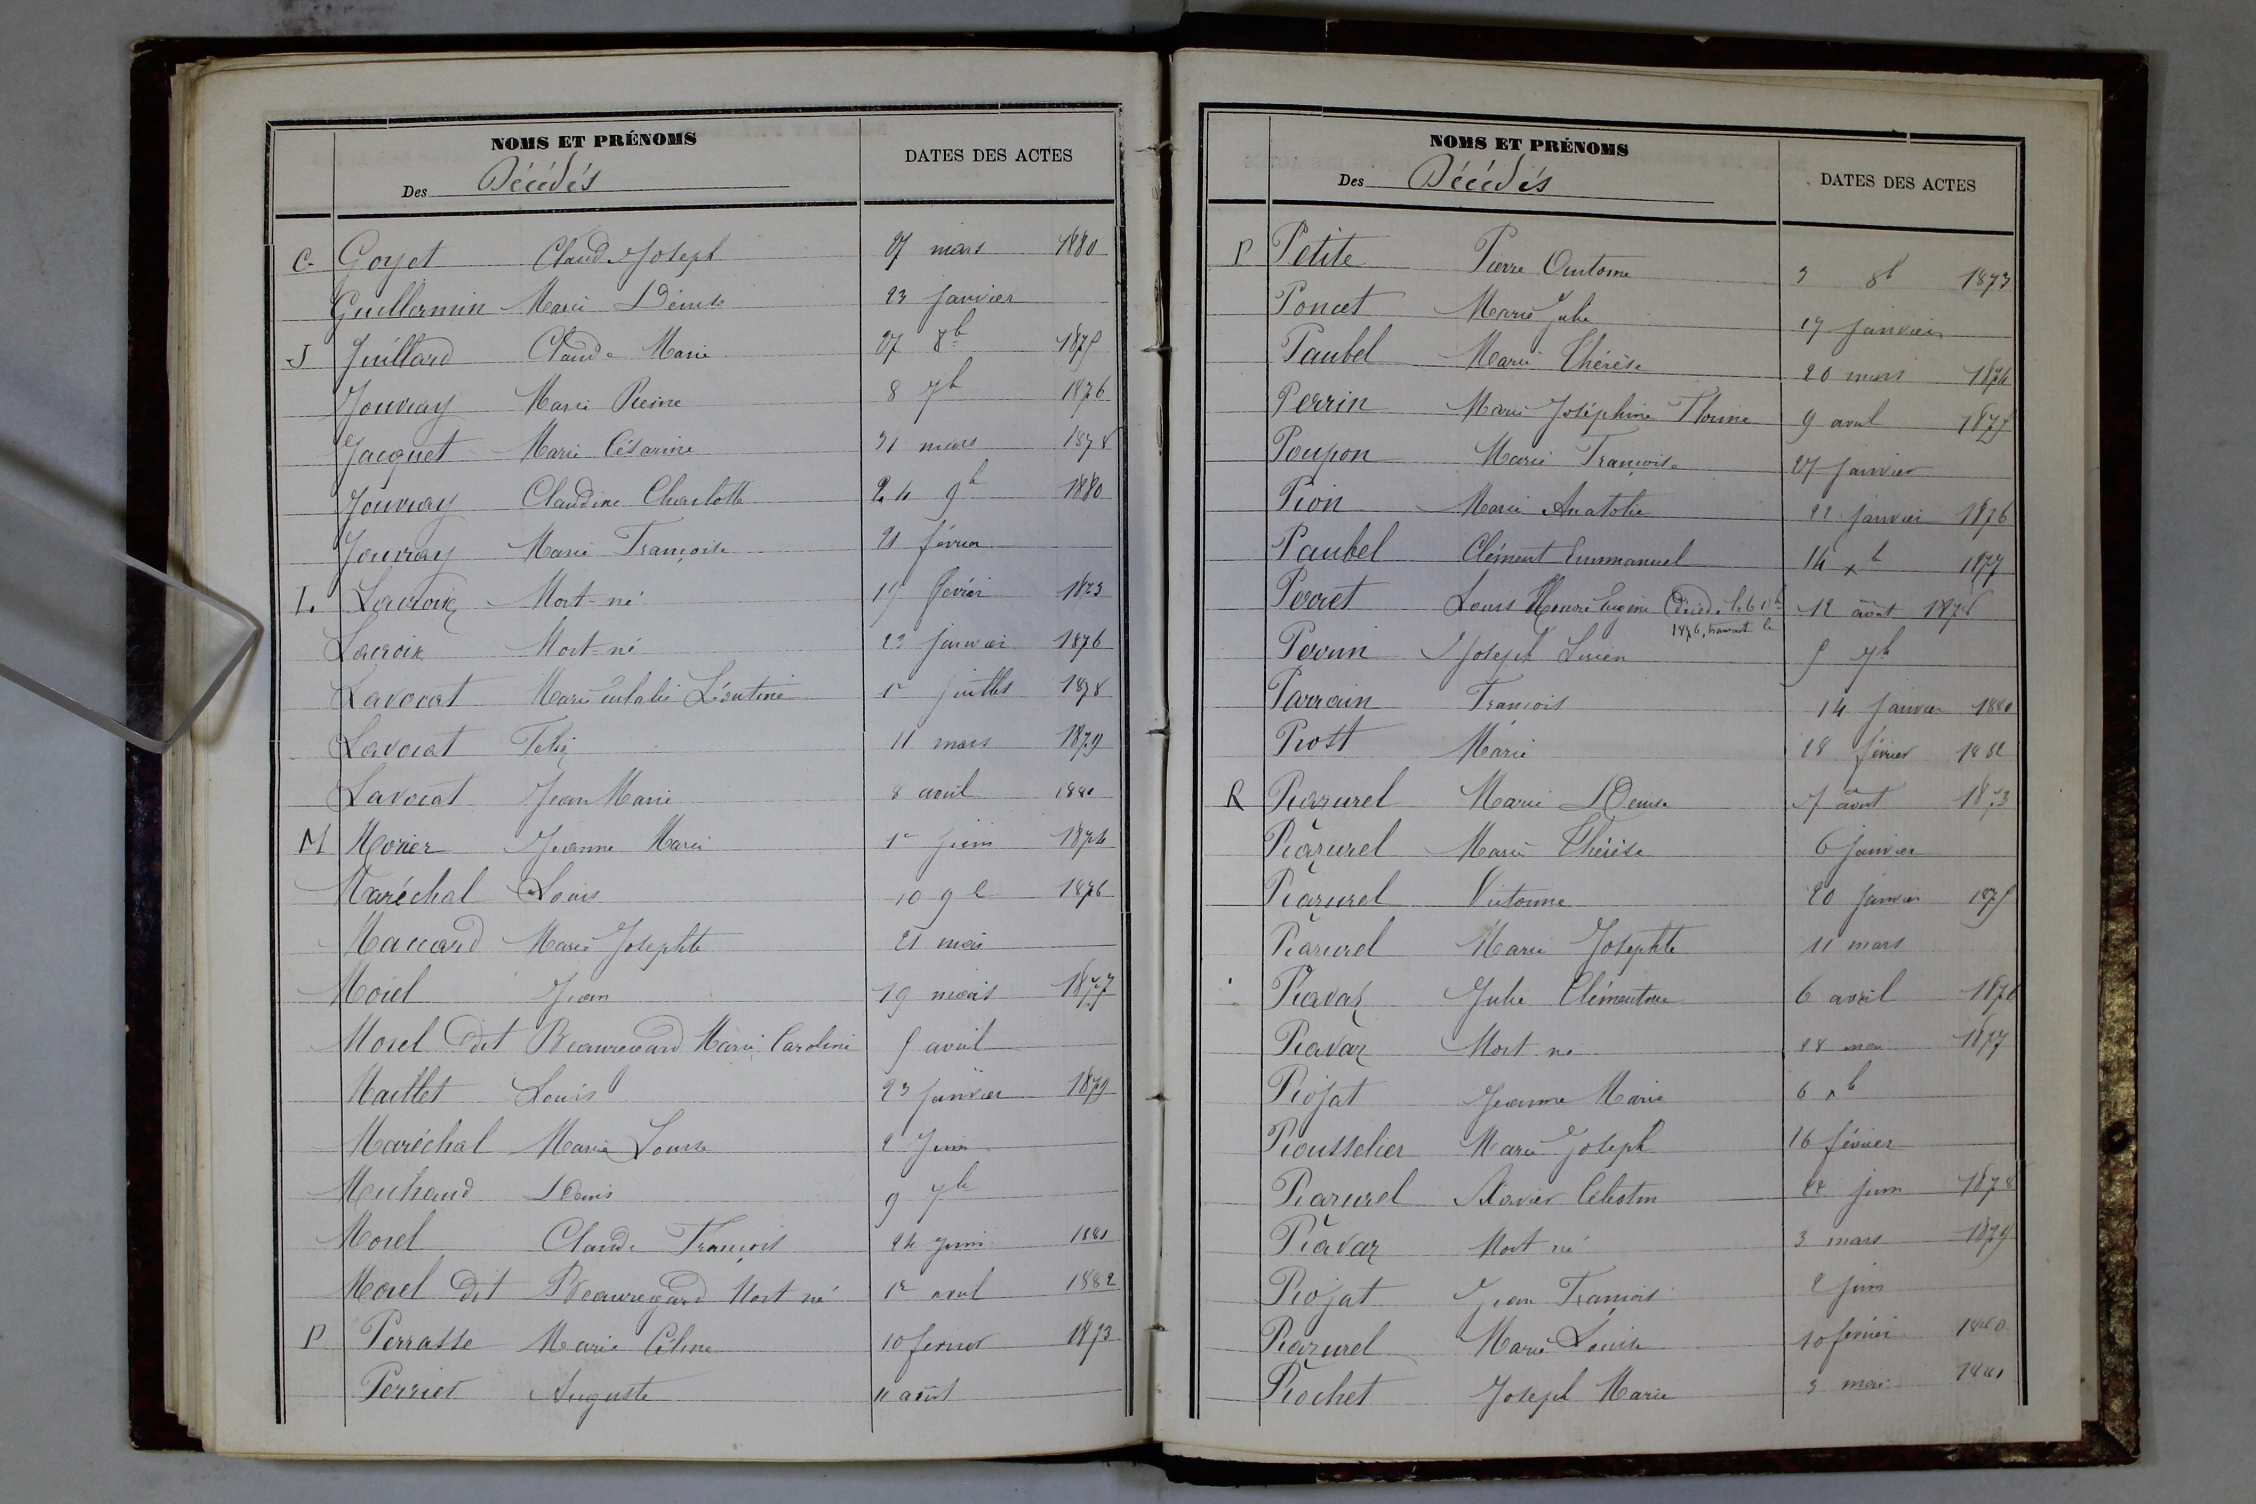 NOMS ET PRÉNOMS
Des Décédés
DATES DES ACTES
G Goyet Claude Joseph 27 mars 1880
Guillermin Marie Denise 23 janvier
J Juillard Claude Marie 27 8b 1875
Jouvray Marie Reine 8 7b 1876
Jacquet Marie Césarine 31 mars 1878
Jouvray Claudine Charlotte 24 9b 1880
Jouvray Marie Françoise 21 février
L Lacroix Mort-né 15 février 1873
Lacroix Mort-né 23 janvier 1876
Lavocat Marie Eulalie Léontine 1r juillet 1878
Lavocat Félix 11 mars 1879
Lavocat Jean Marie 8 avril 1881
M Monier Jeanne Marie 1r juin 1874
Maréchal Louis 10 9b 1876
Maccard Marie Josephte 21 mai
Morel Jean 19 mars 1877
Morel dit Beauregard Marie Caroline 5 avril
Maillet Louis 23 janvier 1879
Maréchal Marie Louise 2 juin
Michaud Denis 9 7b
Morel Claude François 24 juin 1881
Morel dit Beauregard Mort né 1r avril 1882
P Perrasse Marie Céline 10 février 1873
Perrier Auguste 11 août
NOMS ET PRÉNOMS
Des Décédés
DATES DES ACTES
P Petite Pierre Antoine 3 8b 1873
Poncet Marie Julie 19 janvier
Paubel Marie Thérèse 20 mars 1874
Perrin Marie Joséphine Florine 9 avril 1875
Poupon Marie Françoise 27 janvier
Pion Marie Anatolie 22 janvier 1876
Paubel Clément Emmanuel 14 xb 1877
Perret Louis Henri Eugène (décédé le 6 12 août 1878
1876, transcrit le
Perrin Joseph Lucien 5 7b
Parrain François 14 janvier 1880
Prost Marie 28 février 1882
R Razurel Marie Denise 7 août 1873
Razurel Marie Thérèse 6 janvier
Razurel Victorine 20 janvier 1875
Razurel Marie Josephte 11 mars
Ravaz Julie Clémentine 6 avril 1876
Ravaz Mort né 28 mai 1877
Rojat Jeanne Marie 6 xb
Rousselier Marie Joseph 16 février
Razurel Xavier Célestin 22 juin 1878
Ravaz Mort né 3 mars 1879
Rojat Jean François 2 juin
Razurel Marie Louise 10 février 1880
Rochet Joseph Marie 3 mai 1881